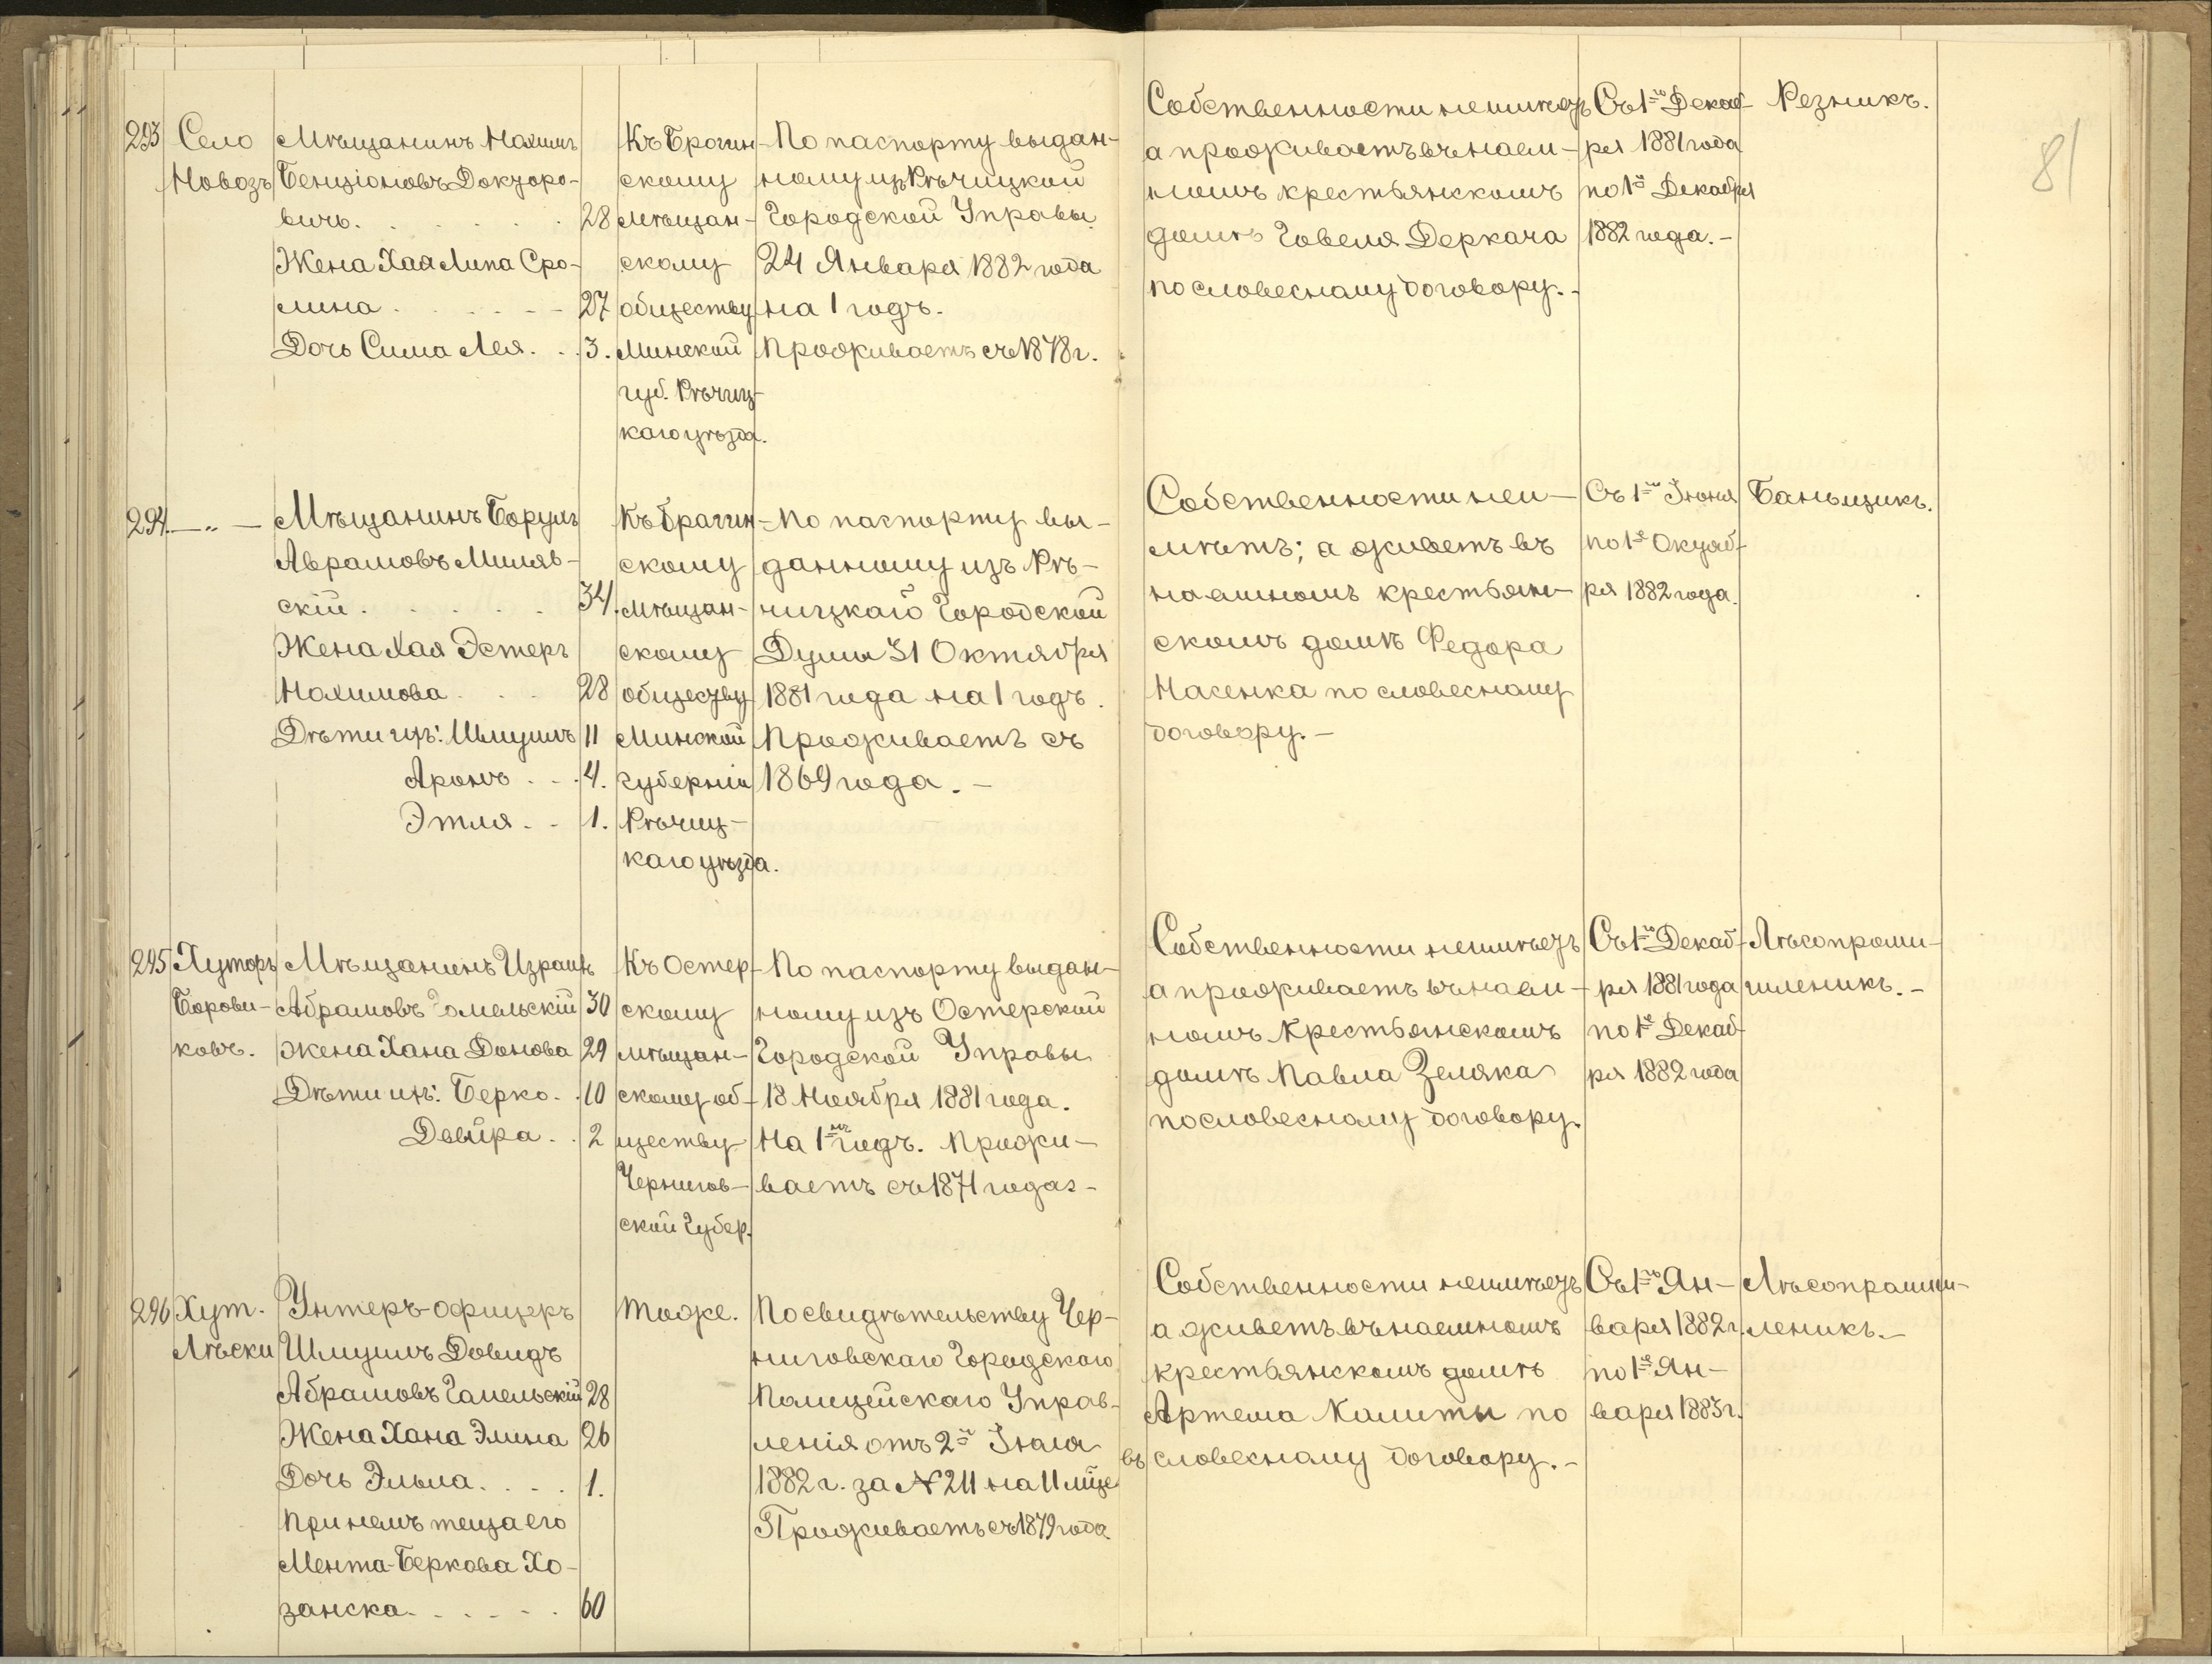 81
293
Село
Новозъ
Мѣщанинъ Нахимъ
Бенціоновъ Докторо-
вичъ. 28
Жена Хая Липа Сро-
лина 27
Дочь Сима Лея. 3.
Къ Брогин-
скому
мѣщан-
скому
обществу
Минской
губ. Рѣчиц-
каго уѣзда.
По паспорту выдан-
ному изъ Рѣчицкой
Городской Управы
24 Января 1882 года
на 1 годъ.
Проживаетъ съ 1878 г.
Собственности неимѣетъ
а проживаетъ въ наем-
номъ крестьянскомъ
домѣ Говеля Деркача
по словесному договору.-
Съ 1го Декаб-
ря 1881 года
по 1е Декабря
1882 года.-
Резникъ.
294.
—„—
Мѣщанинъ Борухъ
Аврамовъ Миляв-
скій 34.
Жена Хая Эстеръ
Нахимова 28
Дѣти ихъ: Шмуимъ 11
Аронъ 4.
Этля 1.
Къ Брагин-
скому
мѣщан-
скому
обществу
Минской
губерніи
Рѣчиц-
каго уѣзда.
По паспорту вы-
данному изъ Рѣ-
чицкаго Городской
Думы 31 Октября
1881 года на 1 годъ.
Проживаетъ съ
1869 года.-
Собственности неи-
мѣетъ; а живетъ въ
наемномъ крестьян-
скомъ домѣ Федора
Насенка по словесному
договору.-
Съ 1го Іюня
по 1е Октяб-
ря 1882 года.
Баньщикъ.
295
Хуторъ
Борови-
ковъ.
Мѣщанинъ Израиль
Абрамовъ Гомельскій 30
Жена Хана Донова 29
Дѣти ихъ: Берко. 10
Двейра. 2
Къ Остер-
скому
мѣщан-
скому об-
ществу
Чернигов-
ской Губер.
По паспорту выдан-
ному изъ Остерской
Городской Управы
18 Ноября 1881 года.
На 1нъ годъ. Прожи-
ваетъ съ 1871 года-
Собственности неимѣетъ
а проживаетъ въ наем-
номъ крестьянскомъ
домѣ Павла Зеляка
по словесному договору.
Съ 1го Декаб-
ря 1881 года
по 1е Декаб-
ря 1882 года
Лѣсопромы-
шленикъ.-
296
Хут.
Лѣски
Унтеръ-офицеръ
Шмуимъ Довидъ
Абрамовъ Гомельскій 28
Жена Хана Элина 26
Дочь Эльна. 1.
При немъ теща его
Мента-Беркова Хо-
занска. 60
Тоже.
По свидѣтельству Чер-
ниговскаго Городскаго
Полицейскаго Управ-
ленія отъ 2го Іюля
1882 г. за № 211 на 11 мѣце
въ
Проживаетъ съ 1879 года
Собственности неимѣетъ
а живетъ въ наемномъ
крестьянскомъ домѣ
Артема Калиты по
словесному договору.-
Съ 1го Ян-
варя 1882 г.
по 1е Ян-
варя 1883 г.
Лѣсопромыш-
леникъ.-